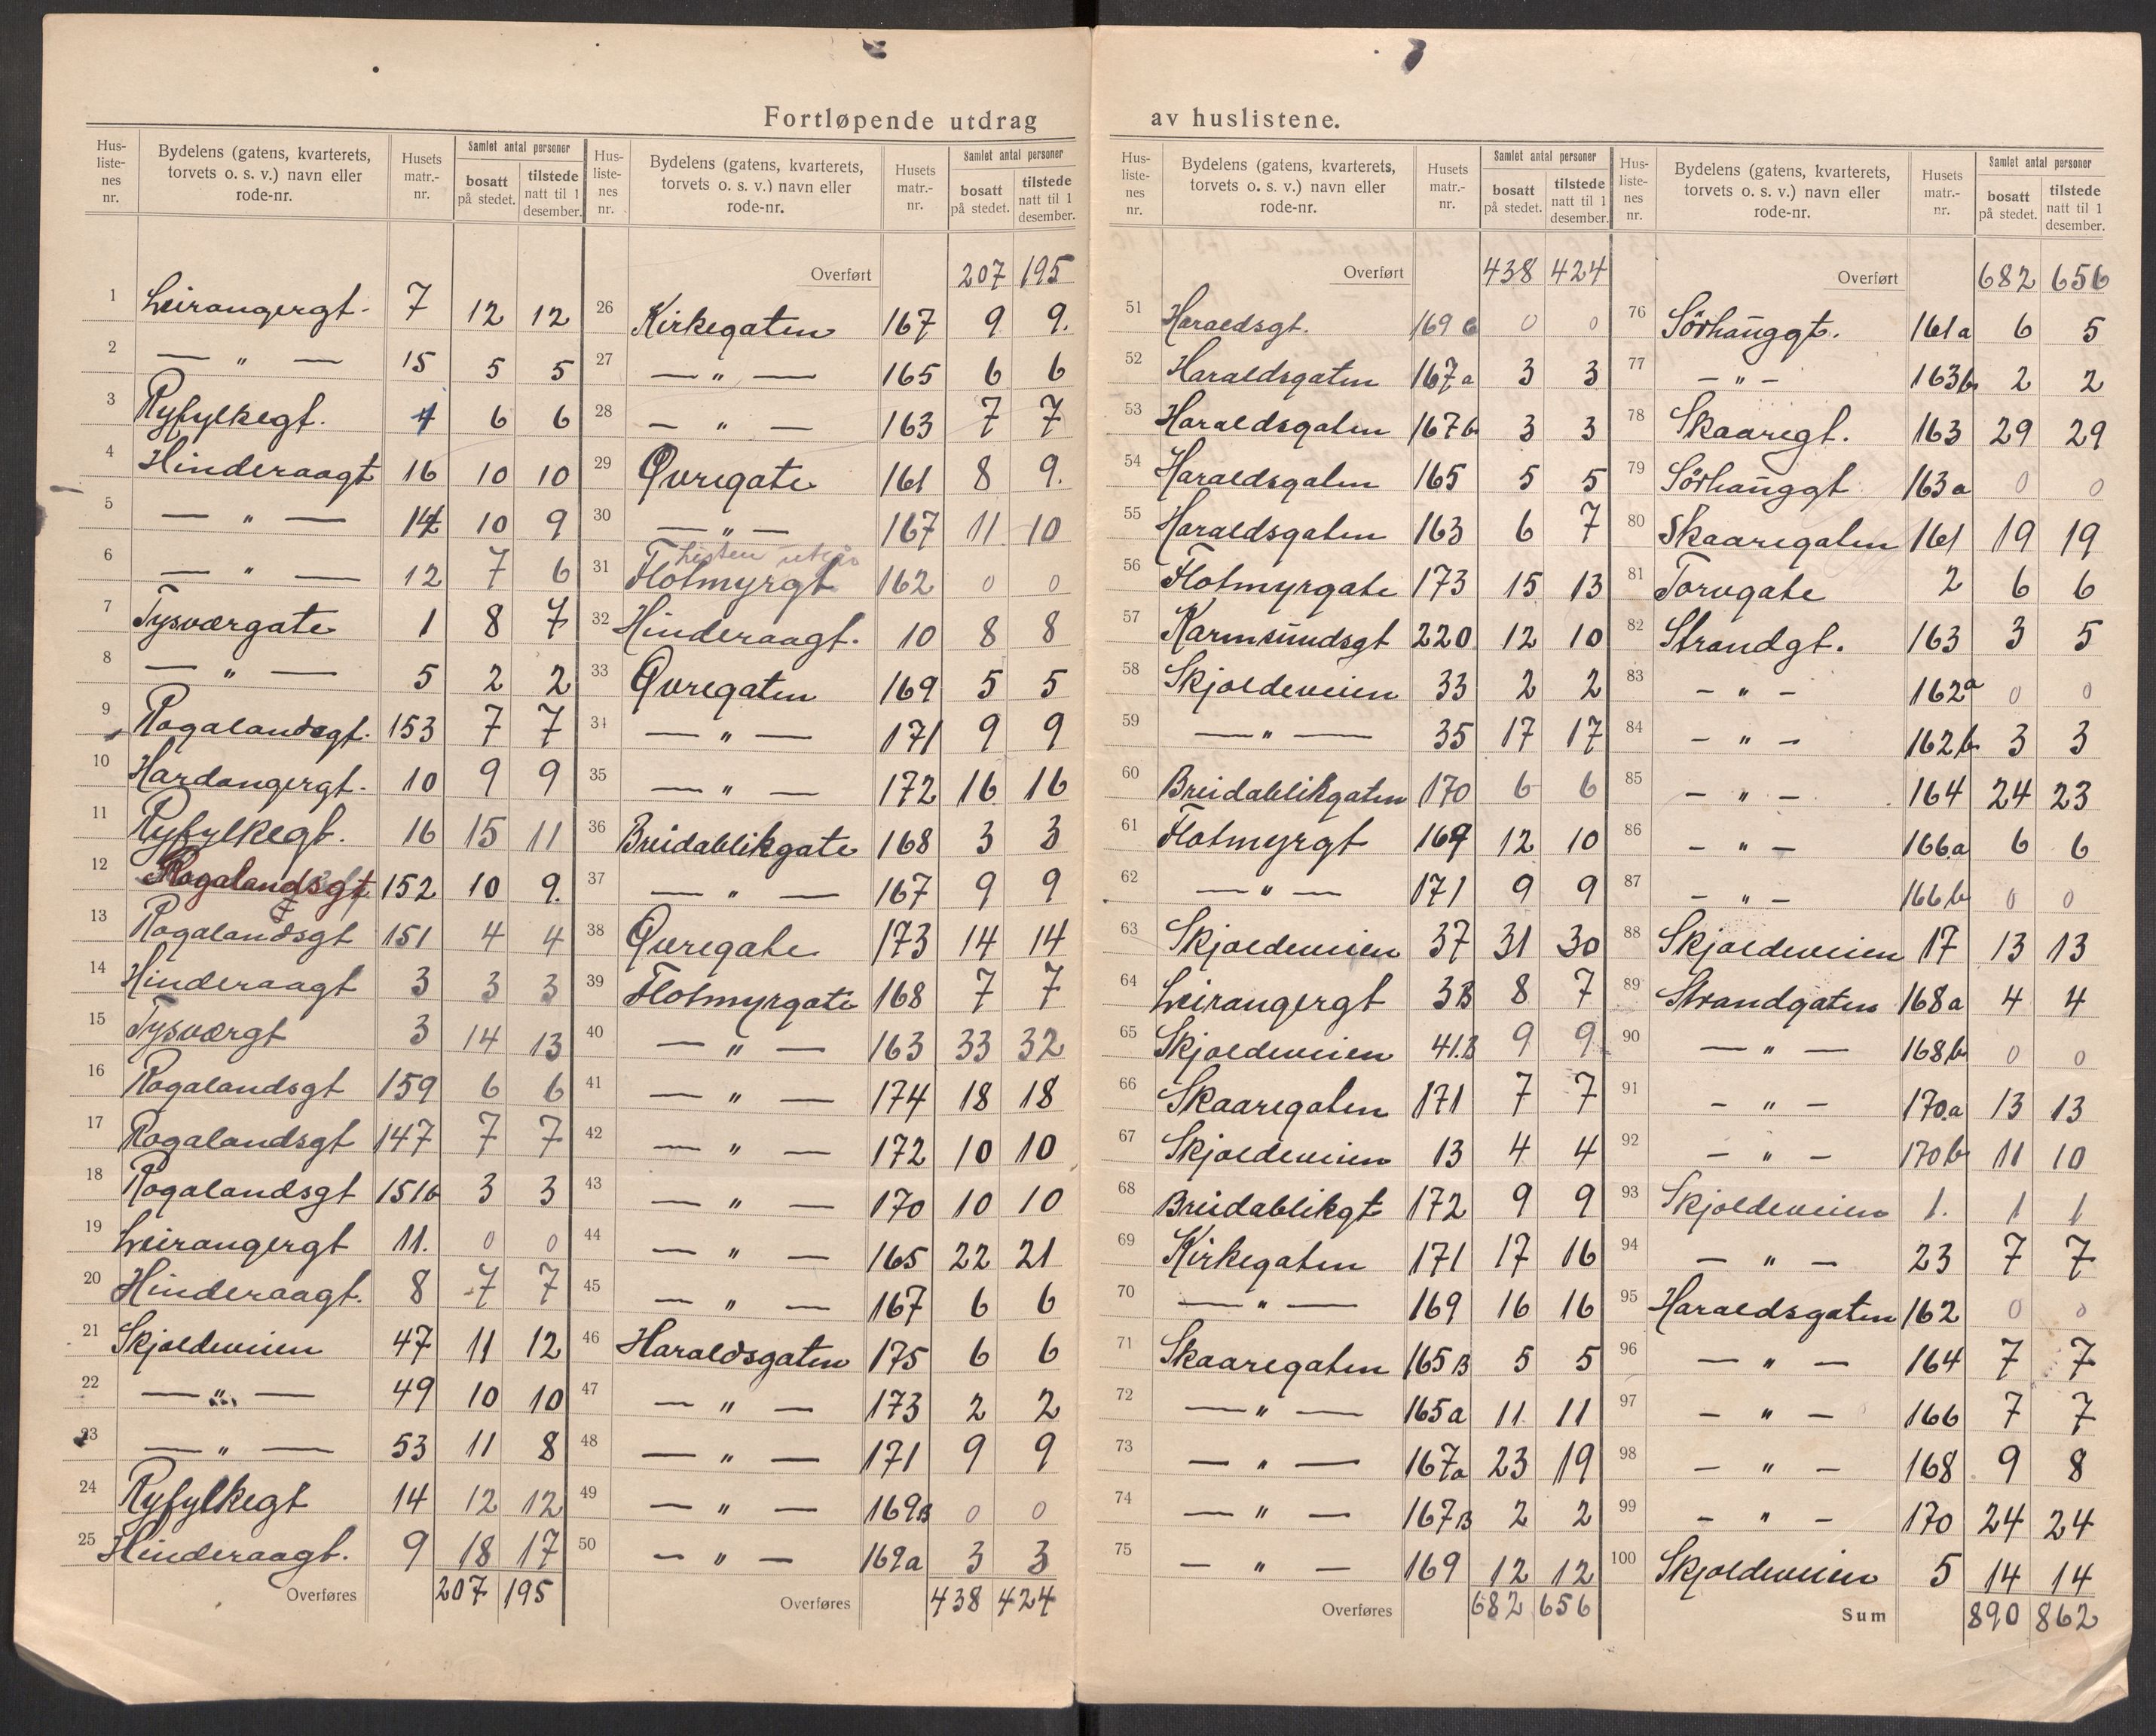 Fortløpende utdrag av huslistene.
Hus-listenes nr. | Bydelens (gatens, kvarterets, torvets o. s. v.) navn eller rode-nr. | Husets matr.-nr. | Samlet antal personer: bosatt på stedet. | tilstede natt til 1 desember.
1 Leirangergt. 7 12 12
2 — " — 15 5 5
3 Ryfylkegt. 4 6 6
4 Hinderaagt 16 10 10
5 — " — 14 10 9
6 — " — 12 7 6
7 Tysværgate 1 8 7
8 — " — 5 2 2
9 Rogalandsgt. 153 7 7
10 Hardangergt. 10 9 9
11 Ryfylkegt. 16 15 11
12 Rogalandsgt 152 10 9.
13 Rogalandsgt 151 4 4
14 Hinderaagt 3 3 3
15 Tysværgt 3 14 13
16 Rogalandsgt 159 6 6
17 Rogalandsgt 147 7 7
18 Rogalandsgt 151b 3 3
19 Leirangergt 11. 0 0
20 Hinderaagt. 8 7 7
21 Skjoldeveien 47 11 12
22 — " — 49 10 10
23 — " — 53 11 8
24 Ryfylkegt 14 12 12
25 Hinderaagt. 9 18 17
Overføres 207 195
Hus-listenes nr. | Bydelens (gatens, kvarterets, torvets o. s. v.) navn eller rode-nr. | Husets matr.-nr. | Samlet antal personer: bosatt på stedet. | tilstede natt til 1 desember.
Overført 207 195
26 Kirkegaten 167 9 9.
27 — " — 165 6 6
28 — " — 163 7 7
29 Øvregate 161 8 9.
30 — " — 167 11 10
Listen utgår
31 Flotmyrgt 162 0 0
32 Hinderaagt. 10 8 8
33 Øvregaten 169 5 5
34 — " — 171 9 9
35 — " — 172 16 16
36 Breidablikgate 168 3 3
37 — " — 167 9 9
38 Øvregate 173 14 14
39 Flotmyrgate 168 7 7
40 — " — 163 33 32
41 — " — 174 18 18
42 — " — 172 10 10
43 — " — 170 10 10
44 — " — 165 22 21
45 — " — 167 6 6
46 Haraldsgaten 175 6 6
47 — " — 173 2 2
48 — " — 171 9 9
49 — " — 169B 0 0
50 — " — 169a 3 3
Overføres 438 424
Hus-listenes nr. | Bydelens (gatens, kvarterets, torvets o. s. v.) navn eller rode-nr. | Husets matr.-nr. | Samlet antal personer: bosatt på stedet. | tilstede natt til 1 desember.
Overført 438 424
51 Haraldsgt. 169 0 0
52 Haraldsgaten 167a 3 3
53 Haraldsgaten 167b 3 3
54 Haraldsgaten 165 5 5
55 Haraldsgaten 163 6 7
56 Flotmyrgate 173 15 13
57 Karmsundsgt 220 12 10
58 Skjoldeveien 33 2 2
59 — " — 35 17 17
60 Breidablikgaten 170 6 6
61 Flotmyrgt 169 12 10
62 — " — 171 9 9
63 Skjoldeveien 37 31 30
64 Leirangergt 3B 8 7
65 Skjoldeveien 41.B 9 9
66 Skaaregaten 171 7 7
67 Skjoldeveien 13 4 4
68 Breidablikgt 172 9 9
69 Kirkegaten 171 17 16
70 — " — 169 16 16
71 Skaaregaten 165B 5 5
72 — " — 165a 11 11
73 — " — 167a 23 19
74 — " — 167B 2 2
75 — " — 169 12 12
Overføres 682 656
Hus-listenes nr. | Bydelens (gatens, kvarterets, torvets o. s. v.) navn eller rode-nr. | Husets matr.-nr. | Samlet antal personer: bosatt på stedet. | tilstede natt til 1 desember.
Overført 682 656
76 Sörhauggt. 161a 6 5
77 — " — 163b 2 2
78 Skaaregt. 163 29 29
79 Sörhauggt 163a 0 0
80 Skaaregaten 161 19 19
81 Torvgate 2 6 6
82 Strandgt. 163 3 5
83 — " — 162a 0 0
84 — " — 162b 3 3
85 — " — 164 24 23
86 — " — 166a 6 6
87 — " — 166b 0 0
88 Skjoldeveien 17 13 13
89 Strandgaten 168a 4 4
90 — " — 168b 0 0
91 — " — 170a 13 13
92 — " — 170b 11 10
93 Skjoldeveien 1. 1 1
94 — " — 23 7 7
95 Haraldsgaten 162 0 0
96 — " — 164 7 7
97 — " — 166 7 7
98 — " — 168 9 8
99 — " — 170 24 24
100 Skjoldeveien 5 14 14
Sum 890 862